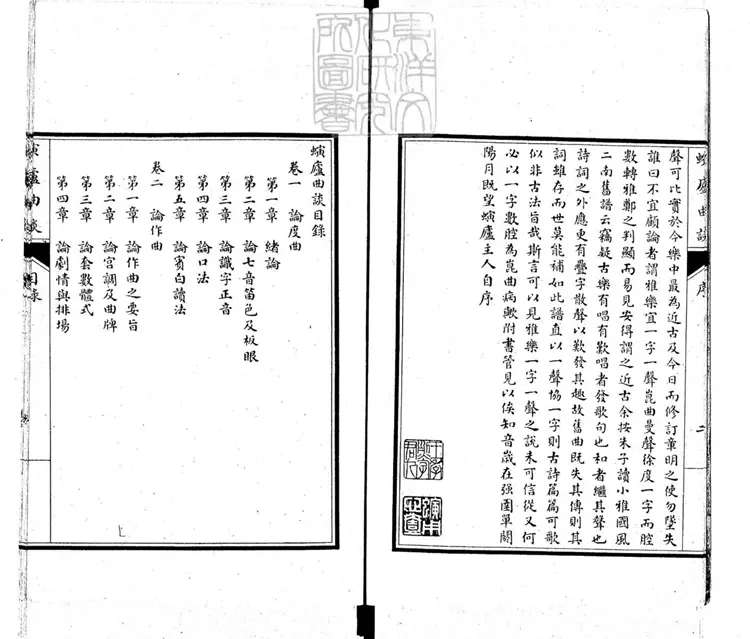 聲可比實於今樂中最為近古及今日而修訂章明之使勿墜失
誰曰不宜顧論者謂雅樂宜一字一聲崑曲曼聲徐度一字而腔
數轉雅鄭之判顯而易見安得謂之近古余按朱子讀小雅國風
二南舊譜云竊疑古樂有唱有歎唱者發歌句也和者繼其聲也
詩詞之外應更有疊字散聲以歎發其趣故舊曲既失其傳則其
詞雖存而世莫能補如此譜直以一聲協一字則古詩篇篇可歌
似非古法旨哉斯言可以見雅樂一字一聲之說未可信從又何
必以一字數腔為崑曲病歟附書管見以俟知音歲在强圉單閼
陽月既望螾廬主人自序
螾廬曲談 序 二
螾廬曲談目錄
卷一 論度曲
第一章 緒論
第二章 論七音笛色及板眼
第三章 論識字正音
第四章 論口法
第五章 論賓白讀法
卷二 論作曲
第一章 論作曲之要旨
第二章 論宮調及曲牌
第三章 論套數體式
第四章 論劇情與排場
螾廬曲談 目錄
東洋文化研究所圖書